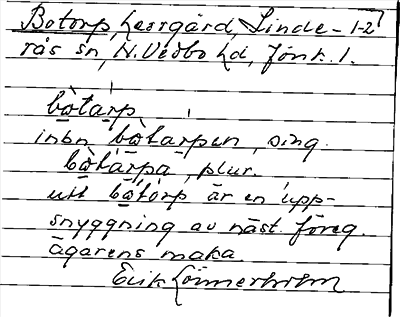 Botorp, herrgård, Linde- 1-2
rås sn, N. Vedbo hd, Jönk. l.
bòtàrp
inbn bòtarpen, sing.
bòtàrpa, plur.
utt bòtòrp är en upp-
snyggning av näst föreg.
ägarens maka.
Erik Lönnerholm